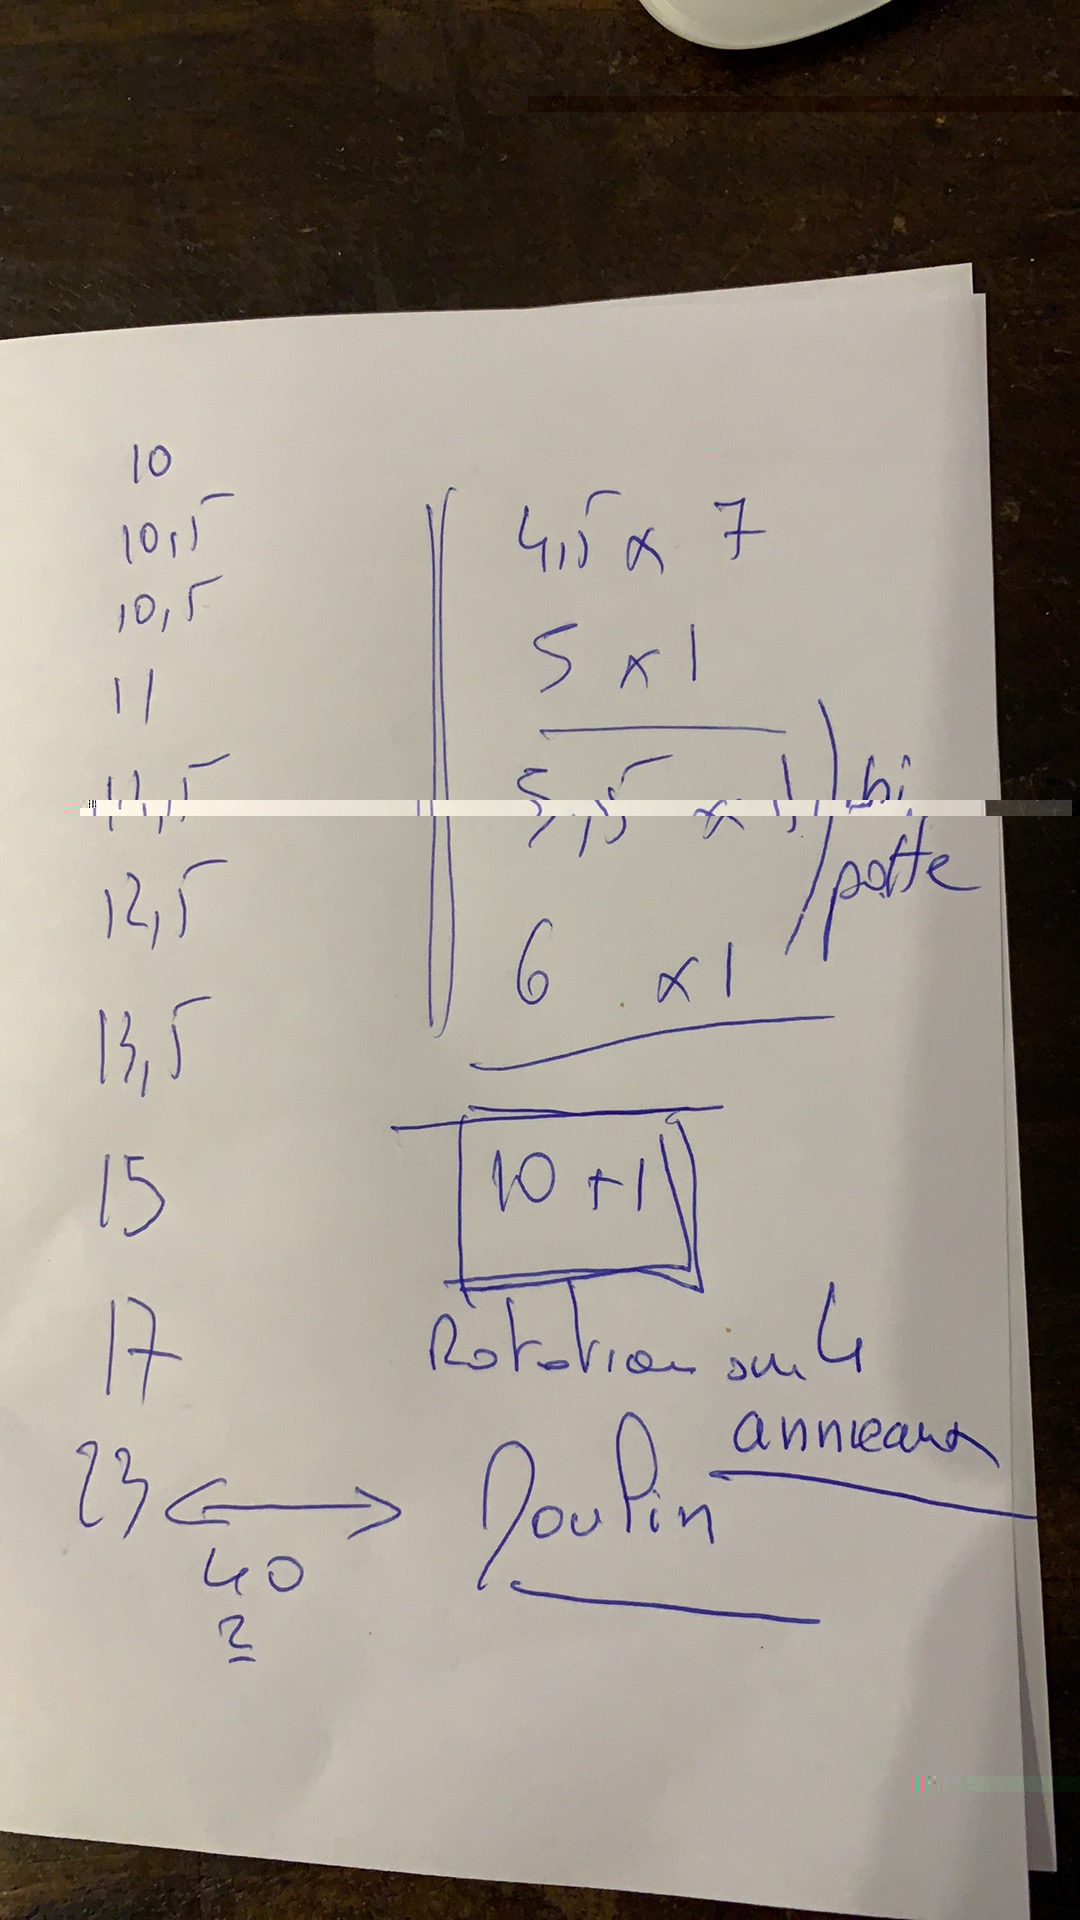 10
10,5
10,5
11
11,5
12,5
13,5
15
17
23
40
2
4,5 x 7
5 x 1
5,5 x 1
bi
patte
6 x 1
10 + 1
Rotation sur 4
annieaux